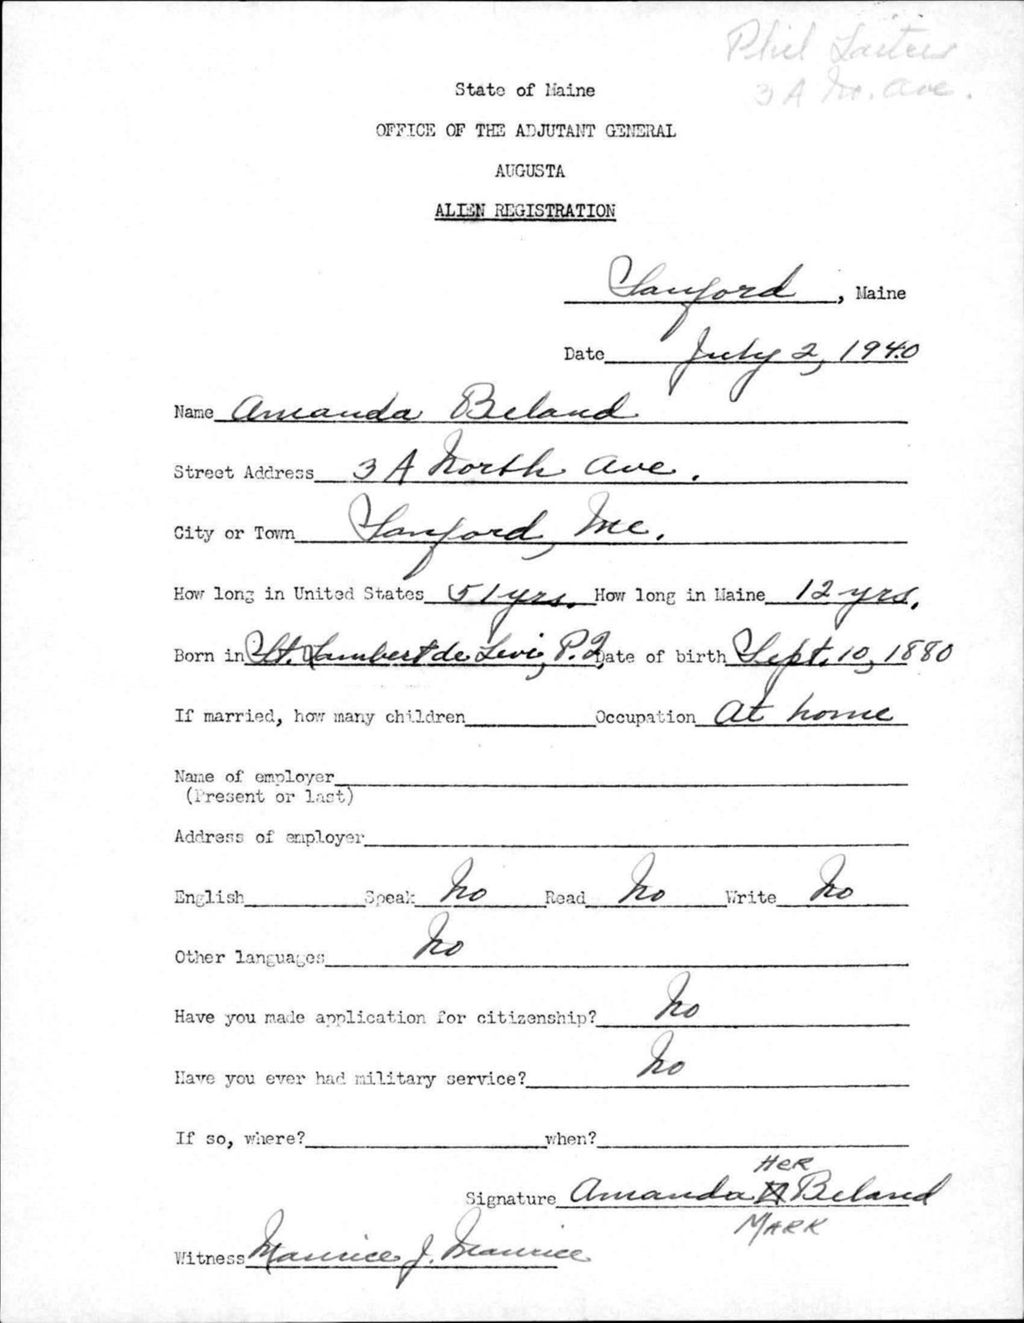 Phil
3 A No. Ave.
State of Maine
OFFICE OF THE ADJUTANT GENERAL
AUGUSTA
ALIEN REGISTRATION
Sanford, Maine
Date July 2, 1940
Name Amanda Beland
Street Address 3 A North Ave.
City or Town Sanford, Me.
How long in United States 51 yrs. How long in Maine 12 yrs.
Born in St. Lambert de Levi, P.Q. Date of birth Sept. 10, 1880
If married, how many children Occupation At home
Name of employer
(Present or last)
Address of employer
English Speak No Read No Write No
Other languages No
Have you made application for citizenship? No
Have you ever had military service? No
If so, where? when?
HER
Signature Amanda X Beland
MARK
Witness Maurice J. Maurice